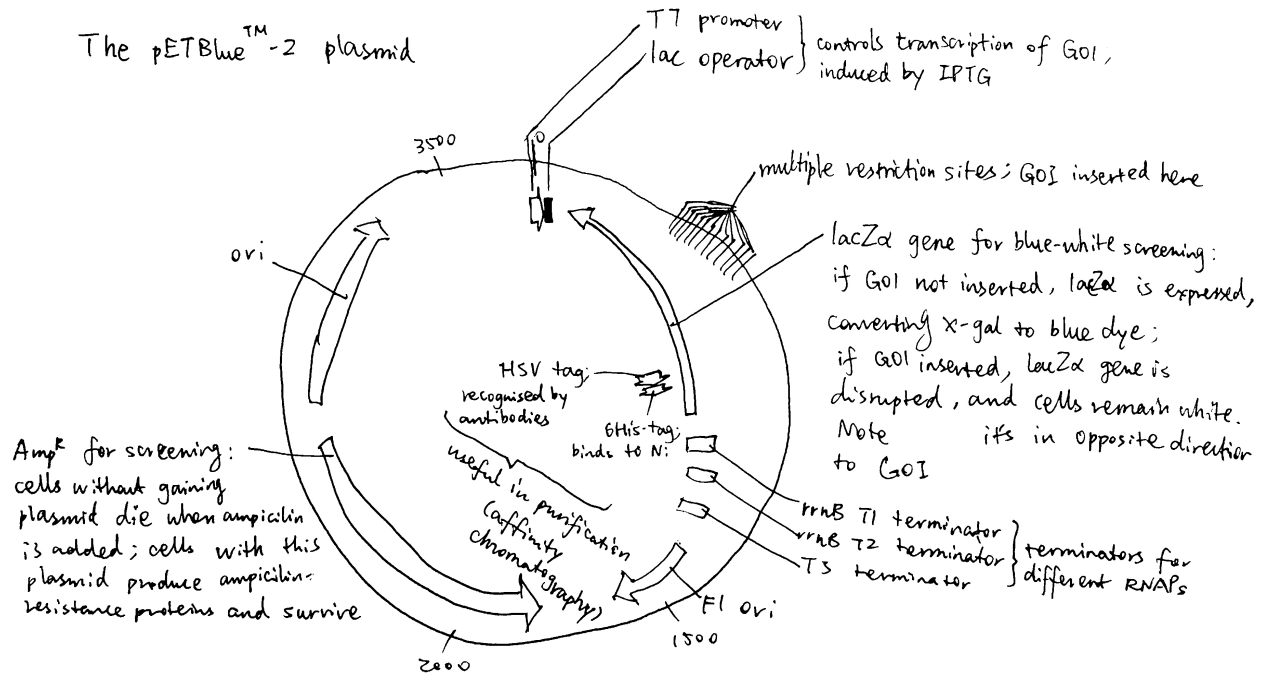 The pETBlue™-2 plasmid
T7 promoter
lac operator
controls transcription of GOI,
induced by IPTG
3500
multiple restriction sites; GOI inserted here
lacZα gene for blue-white screening:
if GOI not inserted, lacZα is expressed,
converting x-gal to blue dye;
if GOI inserted, lacZα gene is
disrupted, and cells remain white.
Note it's in opposite direction
to GOI
ori
HSV tag;
recognised by
antibodies
6His-tag;
binds to Ni
useful in purification
(affinity
chromatography)
Ampᴿ for screening:
cells without gaining
plasmid die when ampicilin
is added; cells with this
plasmid produce ampicilin-
resistance proteins and survive
rrnB T1 terminator
rrnB T2 terminator
T3 terminator
terminators for
different RNAPs
F1 ori
1500
2000